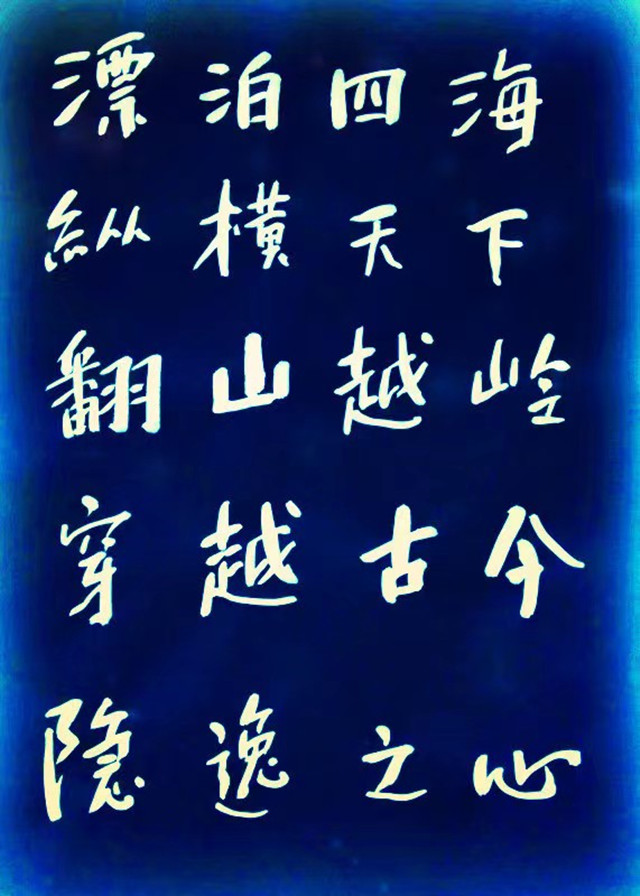 漂泊四海
纵横天下
翻山越岭
穿越古今
隐逸之心